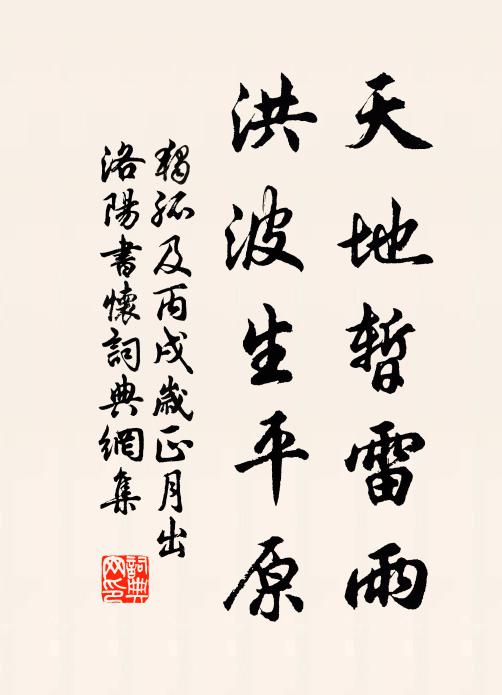 天地暫雷雨
洪波生平原
獨孤及丙戌歲正月出
洛陽書懷詞典網集
詞典网印